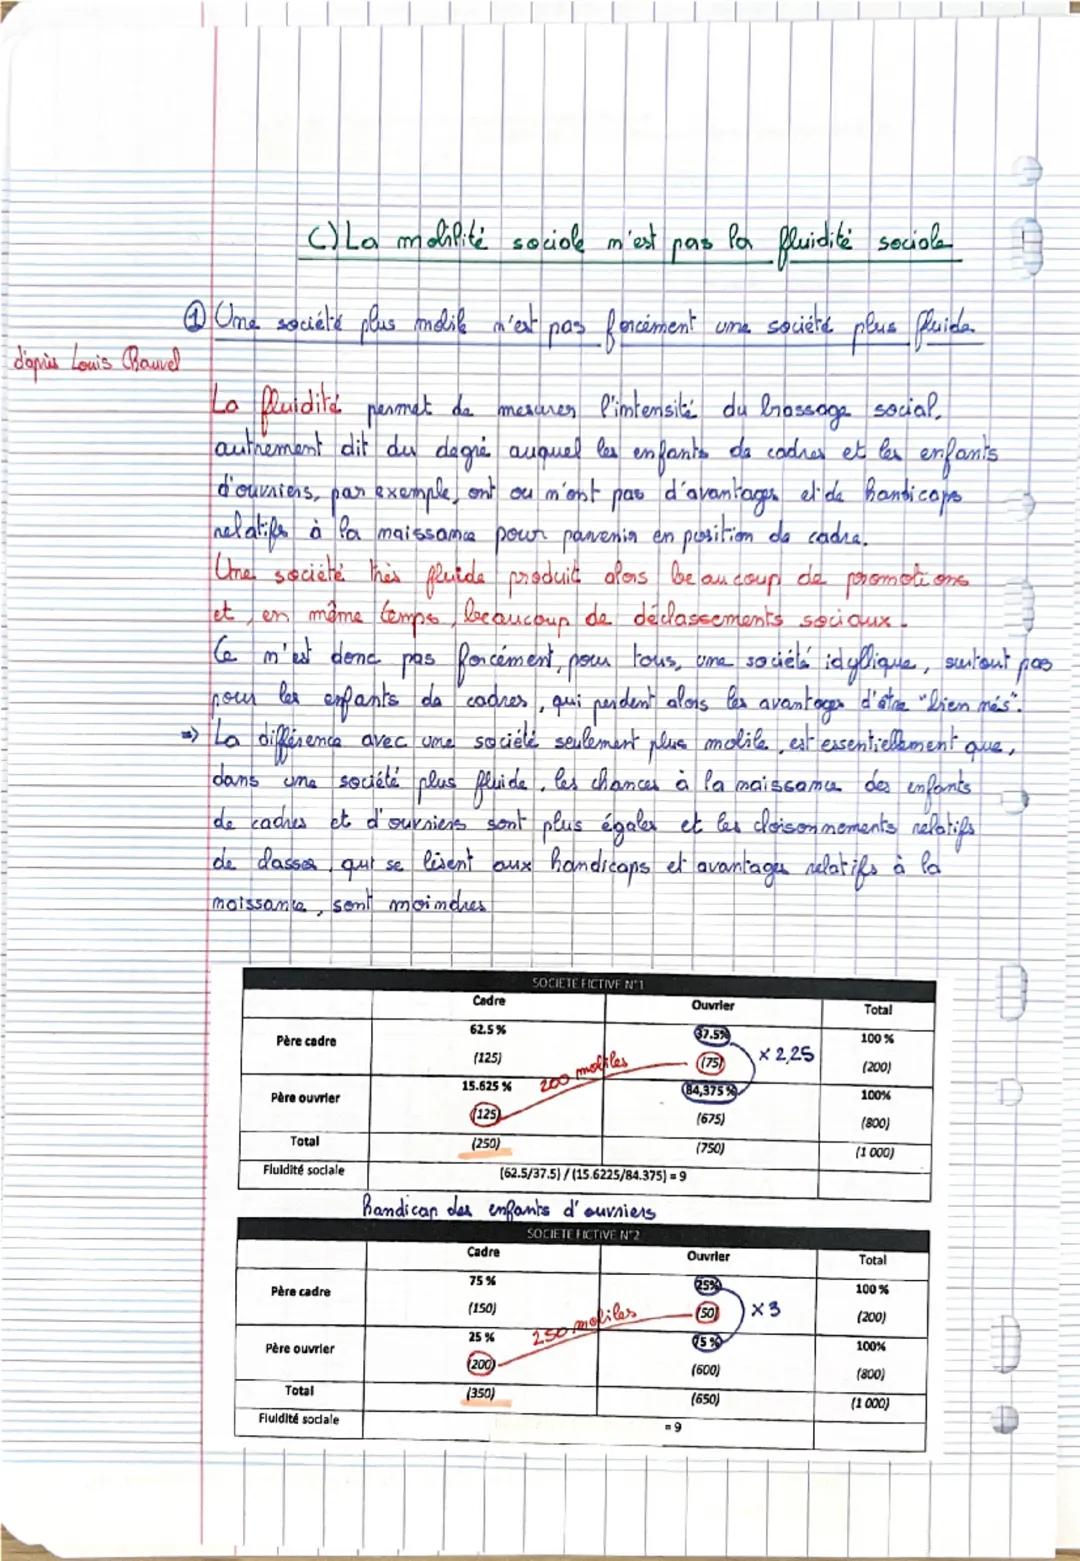 C) La mobilité sociale n'est pas la fluidité sociale
① Une société plus mobile n'est pas forcément une société plus fluide
d'après Louis Chauvel
La fluidité permet de mesurer l'intensité du brassage social,
autrement dit du degré auquel les enfants de cadres et les enfants
d'ouvriers, par exemple, ont ou n'ont pas d'avantages et de handicaps
relatifs à la naissance pour parvenir en position de cadre.
Une société très fluide produit alors beaucoup de promotions
et, en même temps, beaucoup de déclassements sociaux.
Ce n'est donc pas forcément, pour tous, une société idyllique, surtout pas
pour les enfants de cadres, qui perdent alors les avantages d'être "bien nés".
=> La différence avec une société seulement plus mobile, est essentiellement que,
dans une société plus fluide, les chances à la naissance des enfants
de cadres et d'ouvriers sont plus égales et les cloisonnements relatifs
de classes, qui se lisent aux handicaps et avantages relatifs à la
naissance, sont moindres
SOCIETE FICTIVE N°1
Cadre Ouvrier Total
Père cadre 62.5 % 37.5% 100 %
(125) (75) (200)
200 mobiles × 2,25
Père ouvrier 15.625 % 84,375 % 100%
(125) (675) (800)
Total (250) (750) (1 000)
Fluidité sociale (62.5/37.5) / (15.6225/84.375) = 9
handicap des enfants d'ouvriers
SOCIETE FICTIVE N°2
Cadre Ouvrier Total
Père cadre 75 % 25% 100 %
(150) (50) (200)
250 mobiles × 3
Père ouvrier 25 % 75 % 100%
(200) (600) (800)
Total (350) (650) (1 000)
Fluidité sociale = 9